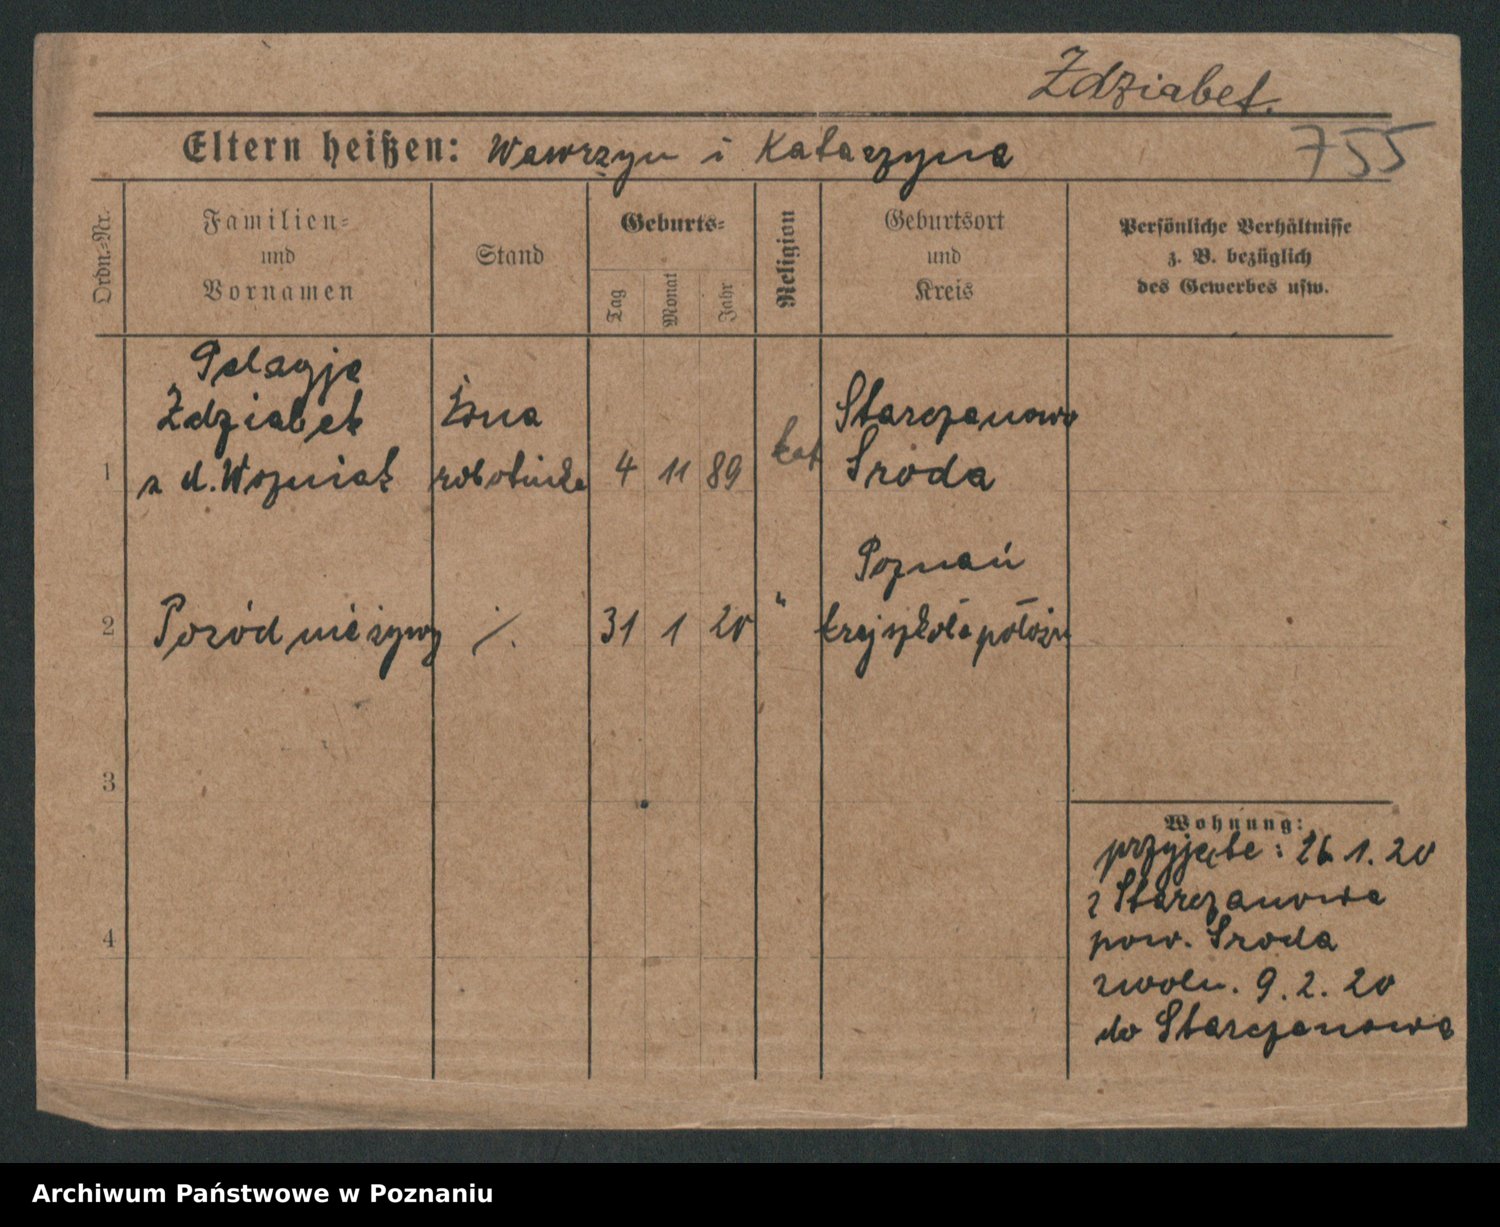 Zdziabek.
755
Eltern heißen: Wawrzyn i Katarzyna
Ordn.-Nr.
Familien-
und
Vornamen
Stand
Geburts-
Tag
Monat
Jahr
Religion
Geburtsort
und
Kreis
Persönliche Verhältnisse
z. B. bezüglich
des Gewerbes usw.
Pelagja
Zdziabek
z d. Wozniak
żona
robotnika
1
4 11 89
kat
Starczanowo
Sroda
2
Poród nieżywy
./.
31 1 20
"
Poznań
kraj szkoła położn
3
4
Wohnung:
przyjęta: 26.1.20
z Starczanowa
pow. Sroda
zwoln. 9.2.20
do Starczanowa
Archiwum Państwowe w Poznaniu